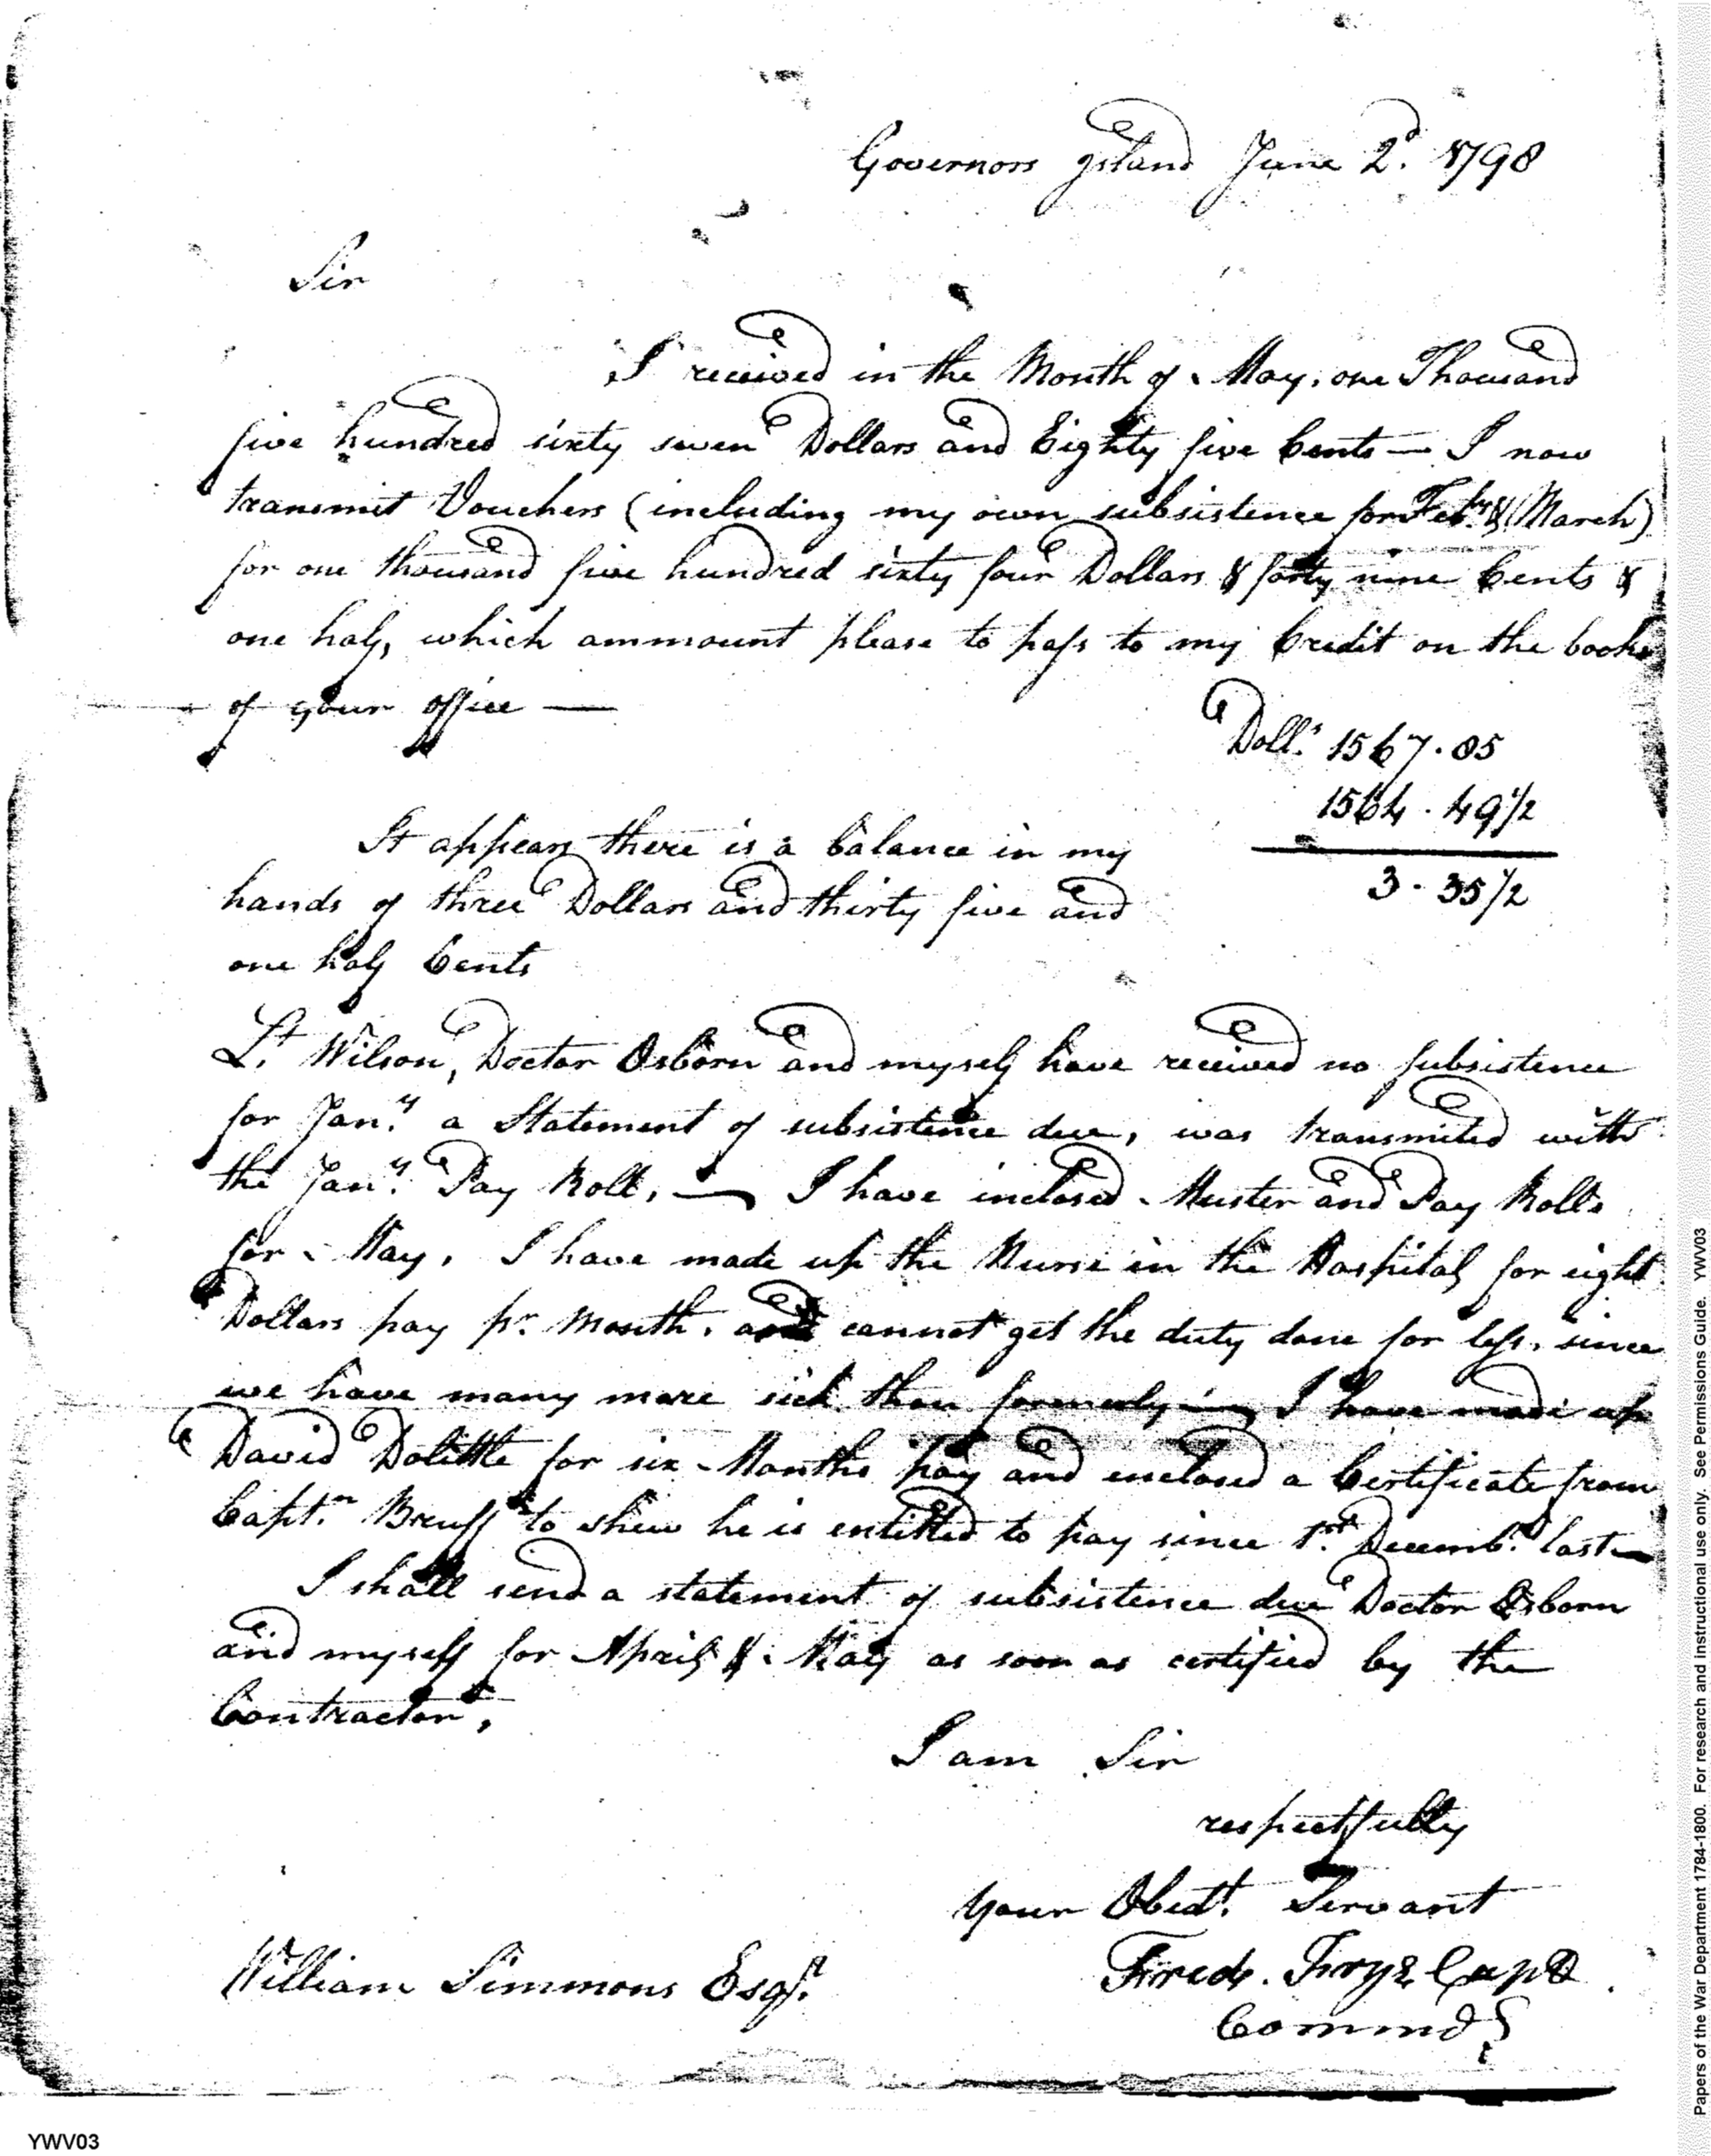 Governors Island June 2d. 1798
Sir
I received in the Month of May, one Thousand
five hundred sixty seven Dollars and Eighty five Cents — I now
transmit Vouchers (including my own subsistence for Feby & March)
for one thousand five hundred sixty four Dollars & forty nine Cents &
one half, which ammount please to pass to my Credit on the books
of your office —
Dolls. 1567.85
1564.49 1/2
3.35 1/2
It appears there is a balance in my
hands of three Dollars and thirty five and
one half Cents
Lt. Wilson, Doctor Osborn and myself have received no subsistence
for Jany. a Statement of subsistence due, was transmited with
the Jany. Pay Roll, — I have inclosed Muster and Pay Rolls
for May, I have made up the Nurse in the Hospital for eight
Dollars pay pr. Month, and cannot get the duty done for less, since
we have many more sick than formerly — I have made up
David Dolittle for six Months pay and enclosed a Certificate from
Captn. Bruff to shew he is entitled to pay since 1st. Decembr. last —
I shall send a statement of subsistence due Doctor Osborn
and myself for April & May as soon as certified by the
Contractor,
I am Sir
respectfully
Your Obedt. Servant
Fredk. Frye Capt
Commd
William Simmons Esqr.
Papers of the War Department 1784-1800. For research and instructional use only. See Permissions Guide. YWV03
YWV03